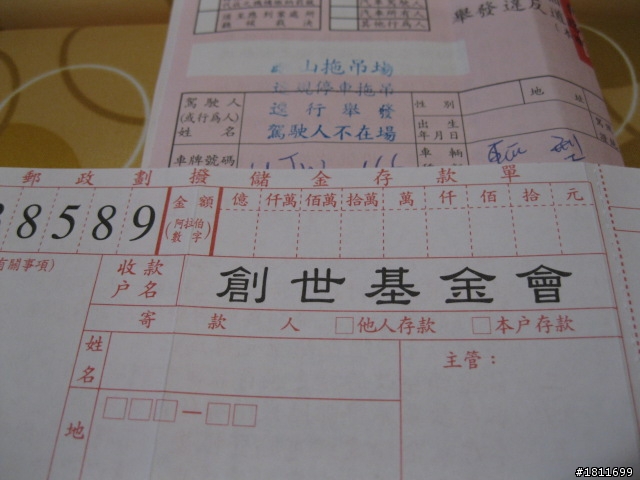 舉發違反道
山拖吊場
違規停車拖吊
逕行舉發
駕駛人不在場
駕駛人
(或行為人)
姓名
性別
出生
年月日
地
地
車牌號碼
車輛
郵政劃撥儲金存款單
8589
金額
(阿拉伯
數字)
億 仟萬 佰萬 拾萬 萬 仟 佰 拾 元
有關事項)
收款
户名
創世基金會
寄款人 □他人存款 □本户存款
姓名
主管：
□□□－□□
地
#1811699